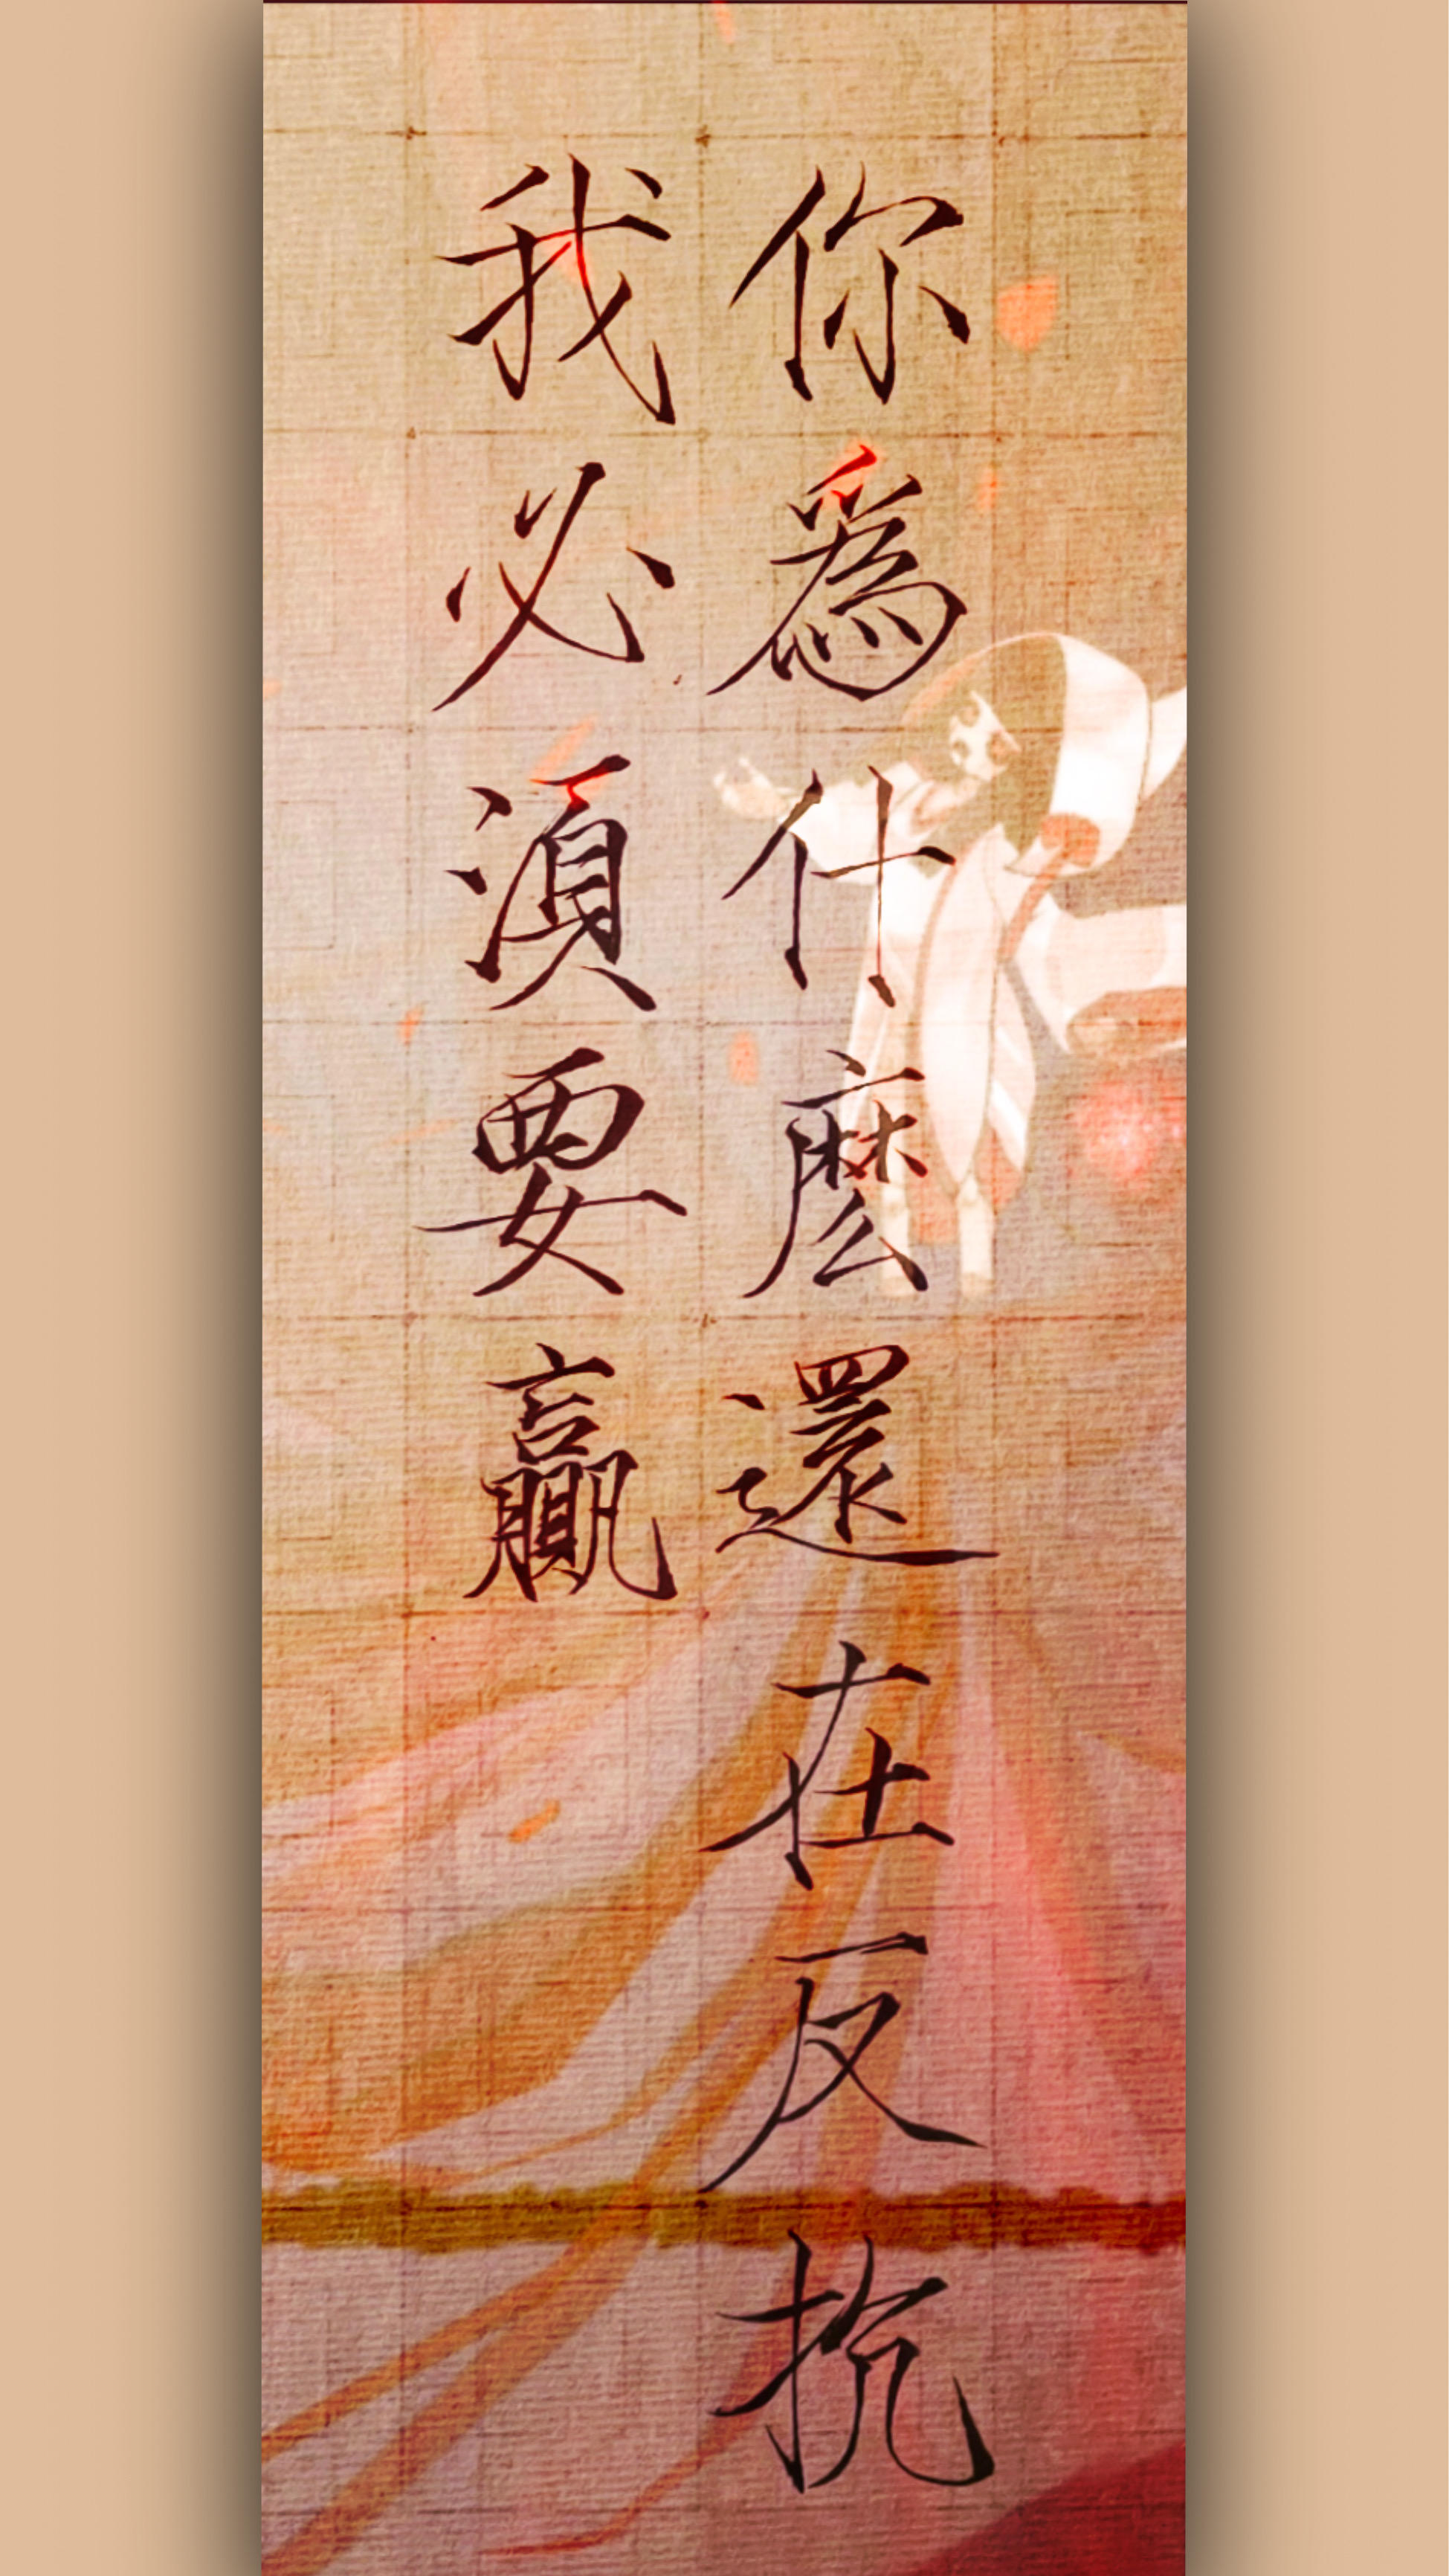 你爲什麽還在反抗
我必湏要贏